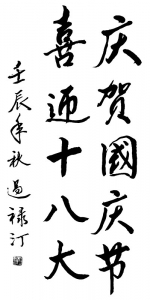 庆贺國庆节
喜迎十八大
壬辰年秋 過禄汀